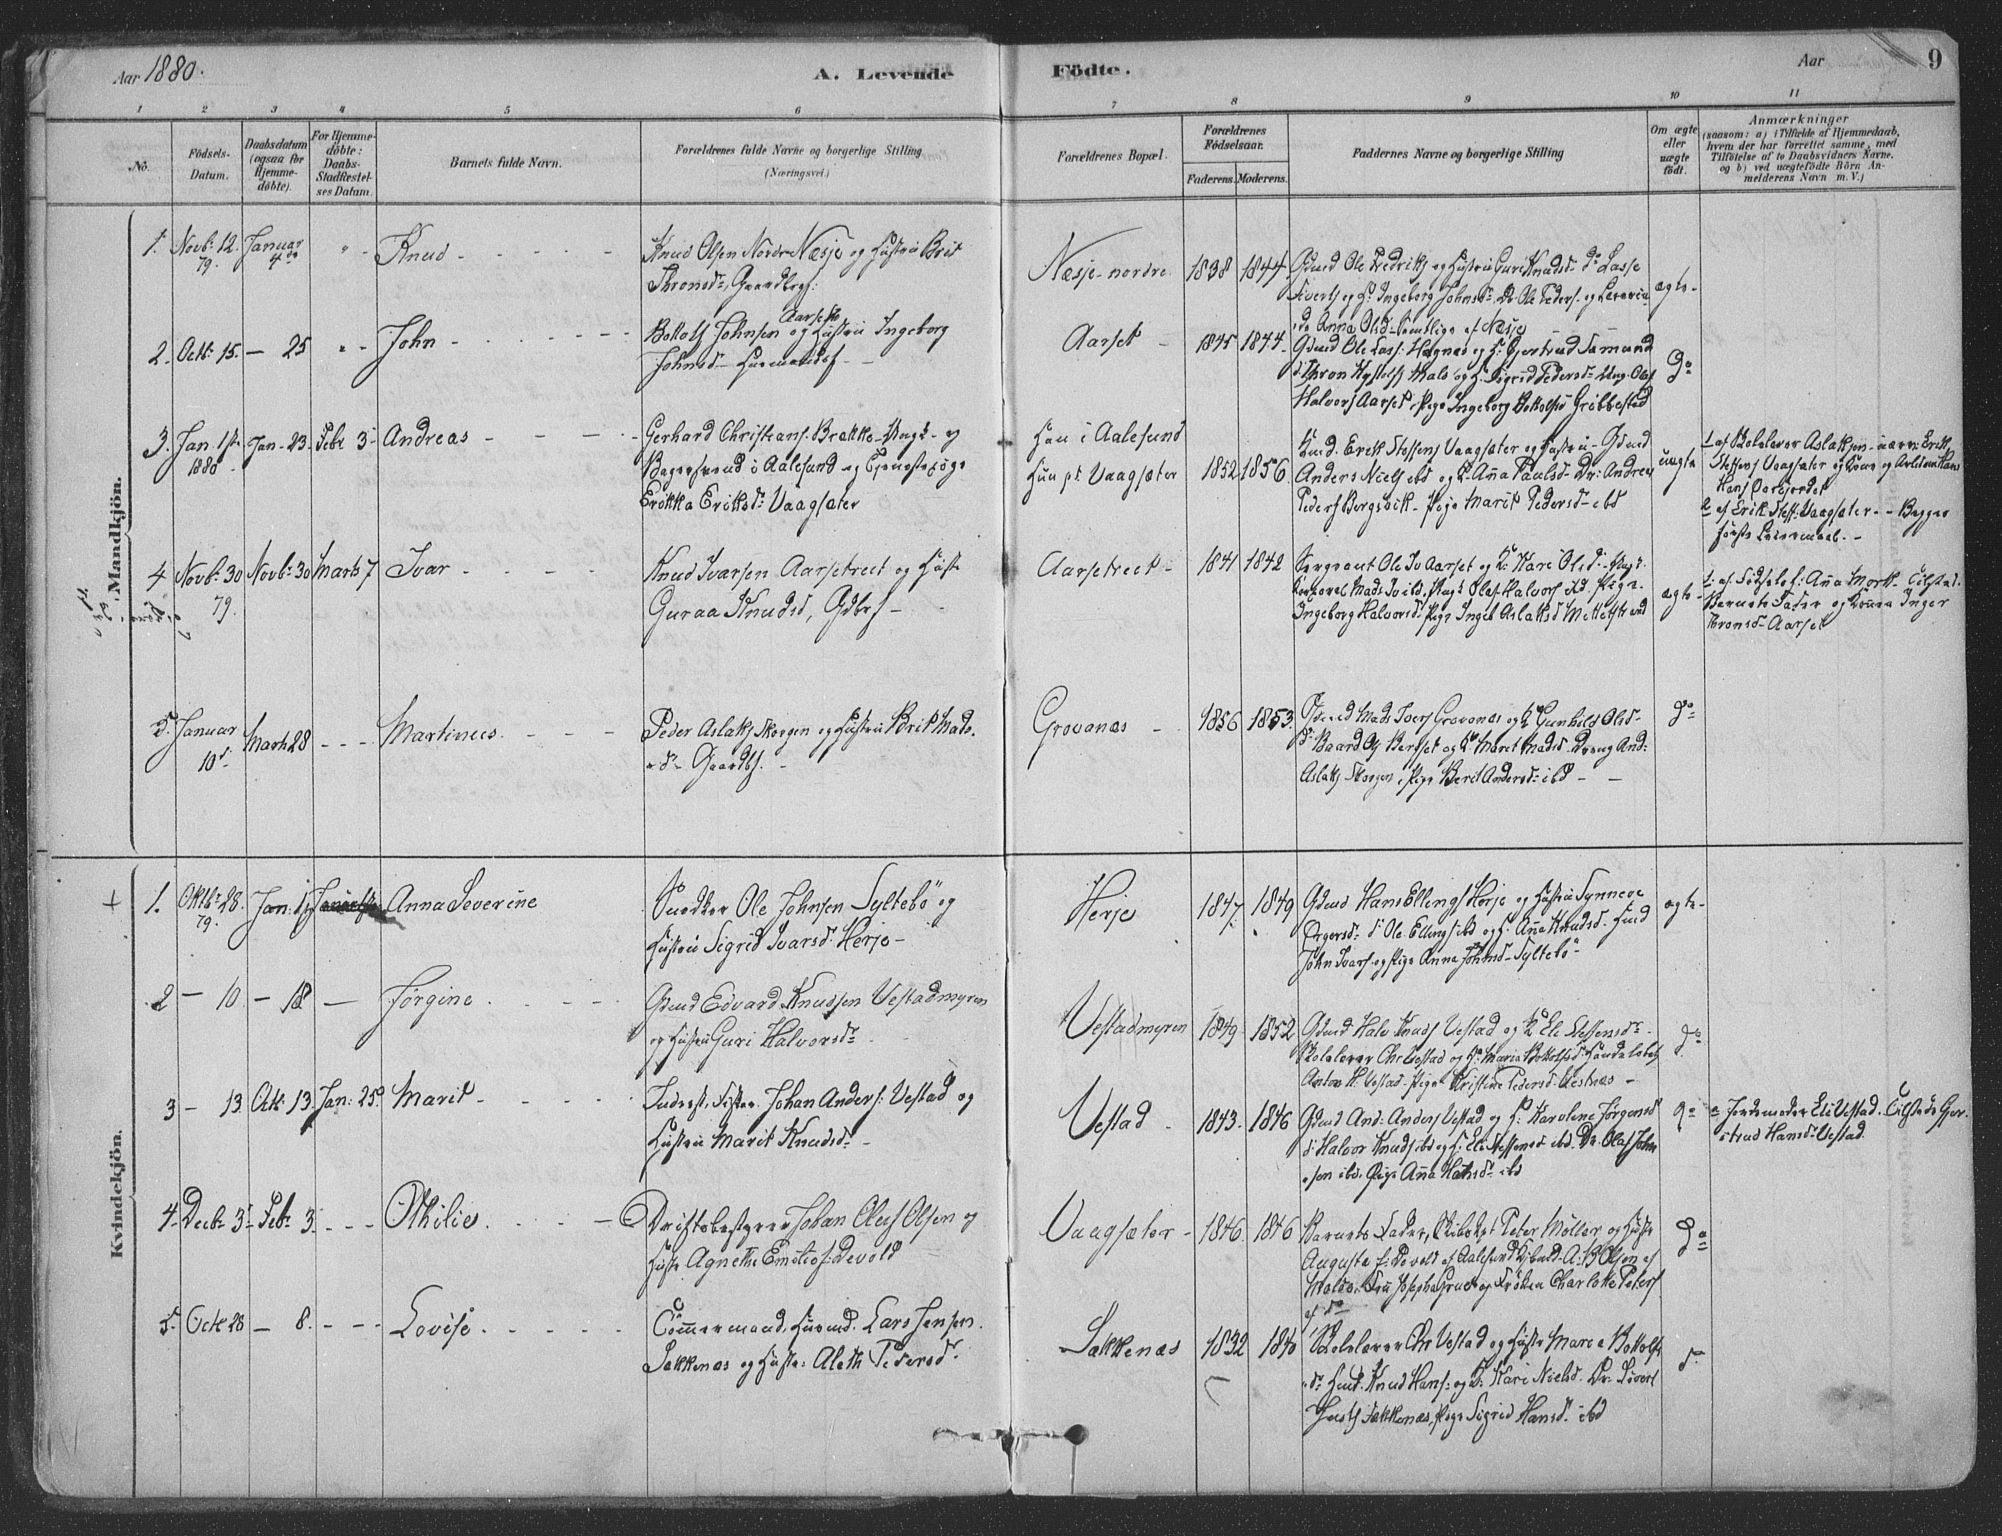 Aar 1880.
A. Levende Födte.
Aar
9
1 2 3 4 5 6 7 8 9 10 11
No.
Födsels-Datum.
Daabsdatum (ogsaa for Hjemme-döbte).
For Hjemme-döbte: Daabs-Stadfæstel-ses Datum.
Barnets fulde Navn.
Forældrenes fulde Navne og borgerlige Stilling (Næringsvei.)
Forældrenes Bopæl.
Forældrenes Födselsaar.
Faderens. Moderens.
Faddernes Navne og borgerlige Stilling
Om ægte eller uægte födt.
Anmærkninger
(saasom: a) i Tilfælde af Hjemmedaab, hvem der har forrettet samme, med Tilföielse af to Daabsvidners Navne, og b) ved uægtefödte Börn An-melderens Navn m. V.)
Mandkjön.
1. Novb: 12. 79. Januar 4de Knud
Knud Olsen Nordre Næsje og Hustru Brit
Thronsdr, Gaardbrs:
Næsje-nordre 1838 1844
Gbmd Ole Fredriks og Hustru Guri Knudsdr do Lasse
Siverts og H. Ingeborg Johnsdr Dr. Ole Peders. og
Anna Olsd Næsje
ægte
2. Octb: 15. - 25 John
Bottolf Johnsen Aarset og Hustru Ingeborg
Johnsd Husmandsf
Aarset 1845 1844
Gbmd Ole Lass: Hagnæs og H: Gjertrud
Thron Mals og H. Sigrid Pedersdr Ung. Olaf
Halvors Aarset, Pige Ingeborg Bottolfsd Gribbestad
do
3. Jan 1ste 1880 Jan. 23. Febr 3 Andreas
Gerhard Christians. Brække, Ungk. og
Bagersvend i Aalesund og Tjenestepige
Erikka Eriksdr Vaagsæter
Han i Aalesund
Hun pt Vaagsæter 1852 1856
Husmd. Erik Steffens Vaagsæter og Hustru - Gbmd
Anders Niels ibd og H. Anna Paulsdr Dr: Andreas
Peders Bergsvik Pige Marit Pedersdr ibd
uægte
1. af Skolelærer Aslaksen
Steffens Vaagsæter og Kone og
2 af Erik Steff: Vaagsæter
4 Novb: 30 79. Novb: 30 Marts 7 Ivar
Knud Ivarsen Aarsetreet og Hust:
Guraa Knudsd, Gdbrf
Aarsetreet 1841 1842
Sergeant Ole Iv Aarset og K. Kari Olsd. Ungk.
Korporal Mads Iv ibd, Ungk Ole Halvors ibd Pige
Ingeborg Halvorsd. Pige Inger Aslaksd Mittetstrand
ægte
1. af Anna Mork. Tilsted:
Barnets Fader og Kone Inger
Thronsd Aarset
5. Januar 10de Marts 28 Martinus
Peder Aslaks Skorgen og Hustru Brit Mads-
dr Gaardbs.
Grovanæs 1856 1853.
Gbmd Mads Ivers Grovanæs og K. Gunhild Olsd
do Baard Berset og K. Marit Madsd. Dreng And:
Aslaks Skorgen, Pige Berit Andersdr ibd
do
Kvindekjön.
1. Oktb: 28. 79. Jan: 1 Anna Severine
Snedker Ole Johnsen Syltebö og
Hustru Sigrid Ivarsd Herje
Herje 1847. 1849
Gbmd Hans Ellings Herje og Hustru Synneve
do Ole Ellings ibd og H. Anna Knudsd. Husmd
John Ivars. og Pige Anna Johnsd Syltebö
ægte
2 - 10 - 18 Jörgine
Gbmd Edvard Knudsen Vestadmyren
og Hustru Guri Halvorsdr
Vestadmyren 1849 1852
Gbmd Halv Knuds Vestad og K. Eli Steffensdr
Skolelærer Chr Vestad og H. Maria Bottolfsd. Handelsbetj
Anton H. Vestad Pige Kristine Pedersd.
do
3 - 13. Octb: 13. Jan: 25 Marit
Johan Anders: Vestad og
Hustru Marit Knudsdr
Vestad 1843. 1846
Gbmd And: Anders Vestad og H: Karoline Jörgensd
do Halvor Knuds ibd og H. Eli Steffensd ibd. Dr. Olaf John-
sen ibd. Pige Anna Hansdr ibd
do
Jordemoder Eli Vestad. Tilstede Gjer-
trud Hansdr Vestad.
4 Decb: 3 Febr 3. Othilie.
Driftsbestyrer Johan Oluf Olsen og
Hustr. Agnethe Emilie f. Devold
Vaagsæter 1846. 1846
Barnets Fader, Skibskpt Peter Möller og Hustr.
Augusta f. Devold af Aalesund A. B Olsen af
Molde, Fru Josepha og Fröken Charlotte Peters
af do
do
5. Octb 28 - 8. Lovise.
Tömmermand, Husmd. Lars Jensen
Sækkenæs og Hustr: Aleth Pedersdr.
Sækkenæs 1832 1840
Skolelærer Chr Vestad og Hustr Maria Bottolfs-
dr Husmd. Knud Hans: og K: Kari Nielsd. Dr. Sivert
Jens Sækkenæs, Pige Sigrid Hansdr ibd
do